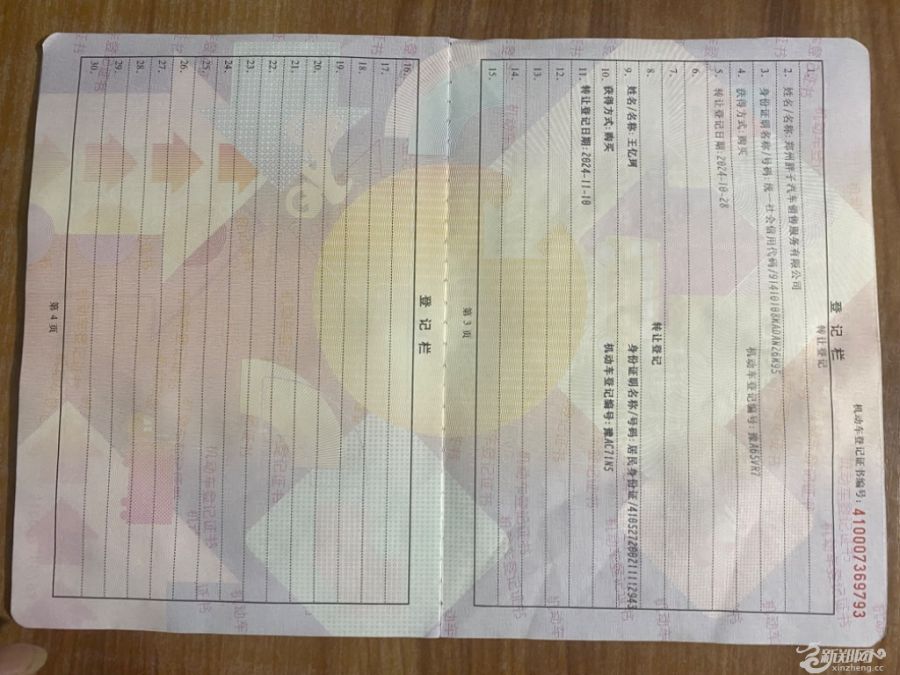 机动车登记证书编号：410007369793
登记栏
转让登记
1.
2. 姓名/名称:郑州胖子汽车销售服务有限公司
3. 身份证明名称/号码:统一社会信用代码/91410103MADAN26W95
4. 获得方式:购买 机动车登记编号:
5. 转让登记日期:2024-10-28
6.
7.
8. 转让登记
9. 姓名/名称:王亿珂 身份证明名称/号码:居民身份证/410527200211112943
10. 获得方式:购买 机动车登记编号:豫AC71N5
11. 转让登记日期:2024-11-10
12.
13.
14.
15.
第 3 页
登记栏
16.
17.
18.
19.
20.
21.
22.
23.
24.
25.
26.
27.
28.
29.
30.
第 4 页
新郑网
xinzheng.cc